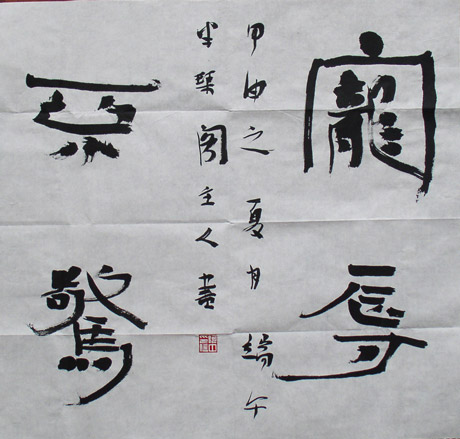 寵辱
甲申之夏月端午
半琹阁主人書
不驚